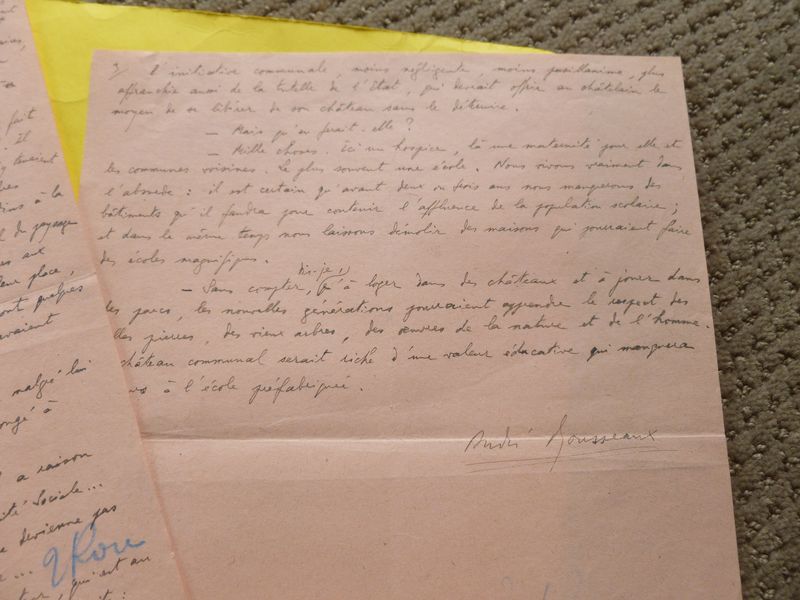 aries,
fait
Il
tenaient
res
ins à la
l du paysage
es aux
leur place,
ont quelques
avaient
malgré lui
ongé à
a raison
ité Sociale...
devienne pas
qui est au
3/ L'initiative communale, moins négligente, moins pusillanime, plus
affranchie aussi de la tutelle de l'État, qui devrait offrir au châtelain le
moyen de se libérer de son château sans le détruire.
— Mais qu'en ferait-elle ?
— Mille choses. Ici un hospice, là une maternité pour elle et
les communes voisines. Le plus souvent une école. Nous vivons vraiment dans
l'absurde : il est certain qu'avant deux ou trois ans nous manquerons des
bâtiments qu'il faudra pour contenir l'affluence de la population scolaire ;
et dans le même temps nous laissons démolir des maisons qui pourraient faire
des écoles magnifiques.
— Sans compter, dis-je, qu'à loger dans des châteaux et à jouer dans
les parcs, les nouvelles générations pourraient apprendre le respect des
lles pierres, des vieux arbres, des œuvres de la nature et de l'homme.
château communal serait riche d'une valeur éducative qui manquera
à l'école préfabriquée.
André Rousseaux